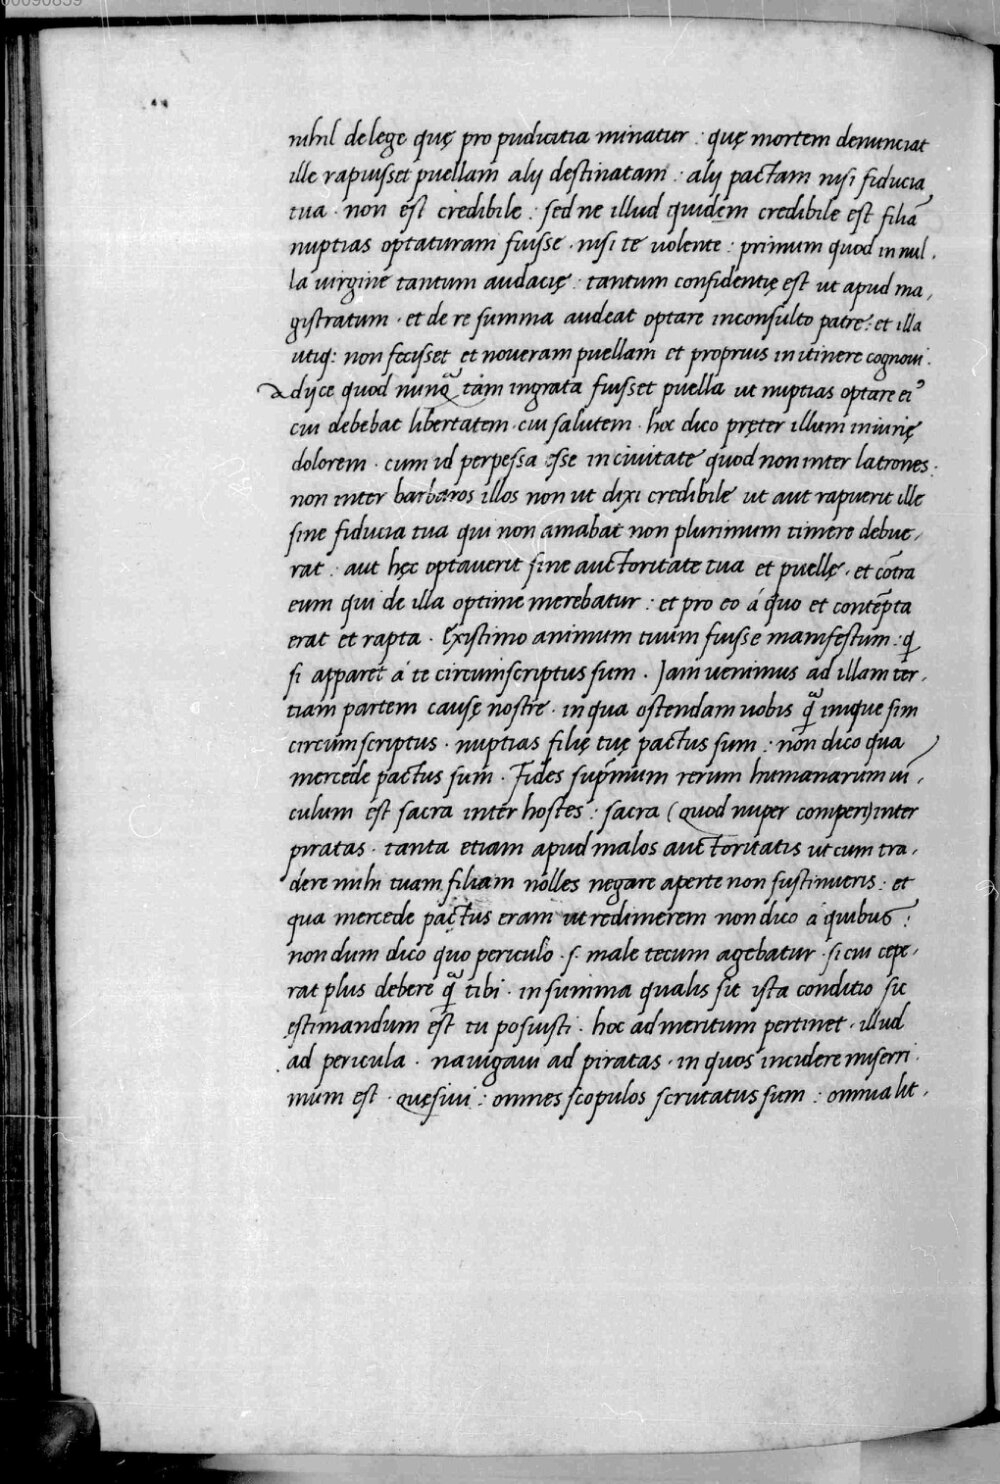 00090859
nihil de lege quę pro pudicitia minatur : quę mortem denunciat
ille rapuisset puellam alij destinatam : alij pactam nisi fiducia
tua · non est credibile : sed ne illud quidem credibile est filiā
nuptias optaturam fuisse · nisi te uolente : primum quod in nul ,
la uirgine tantum audacię : tantum confidentię est ut apud ma ,
gistratum · et de re summa audeat optare inconsulto patre : et illa
utiq: non fecisset et noueram puellam et proprius in itinere cognoui .
adijce quod nunꝗ̃ tam ingrata fuisset puella ut nuptias optare ei9
cui debebat libertatem · cui salutem · hoc dico pręter illum iniurię
dolorem · cum id perpessa esse in ciuitate quod non inter latrones :
non inter barbaros illos non ut dixi credibile ut aut rapuerit ille
sine fiducia tua qui non amabat non plurimum timere debue ,
rat : aut hęc optauerit sine auctoritate tua et puellę · et cōtra
eum qui de illa optime merebatur : et pro eo á quo et contēpta
erat et rapta · Existimo animum tuum fuisse manifestum : ꝗ
si apparet á te circumscriptus sum . Jam uenimus ad illam ter ,
tiam partem causę nostre · in qua ostendam uobis ꝗ̃ inique sim
circumscriptus · nuptias filię tuę pactus sum : non dico qua
mercede pactus sum · Fides sup̄mum rerum humanarum uī ,
culum est sacra inter hostes : sacra (quod nuper comperi) inter
piratas · tanta etiam apud malos auctoritatis ut cum tra ,
dere mihi tuam filiam nolles negare aperte non sustinueris : et
qua mercede pactus eram ut redimerem non dico a quibus :
non dum dico quo periculo · s· male tecum agebatur · si cui cepe ,
rat plus debere ꝗ̃ tibi · in summa qualis sit ista conditio sic
ęstimandum est tu posuisti · hoc ad meritum pertinet · illud
ad pericula · nauigaui ad piratas · in quos incidere miserri
mum est · quęsiui : omnes scopulos scrutatus sum : omnia lit ,